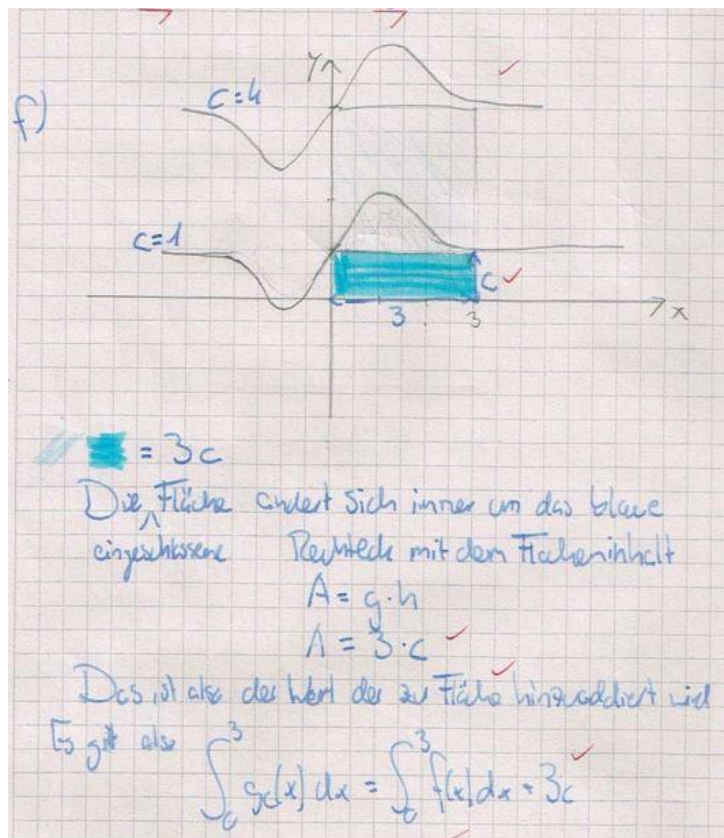 f)
y
C=4
C=1
C
3
3
x
= 3c
Die Fläche ändert sich immer um das blaue
eingeschlossene Rechteck mit dem Flächeninhalt
A = g·h
A = 3·c
Das ist also der Wert der zur Fläche hinzuaddiert wird
Es gilt also ∫₀³ g_c(x) dx = ∫₀³ f(x) dx + 3c